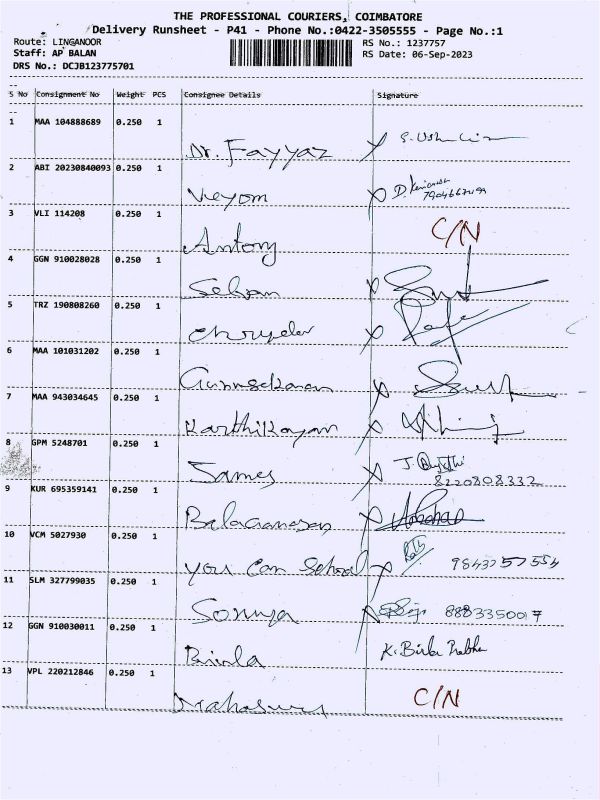 THE PROFESSIONAL COURIERS, COIMBATORE
Delivery Runsheet - P41 - Phone No.:0422-3505555 - Page No.:1
Route: LINGANOOR
RS No.: 1237757
Staff: AP BALAN
RS Date: 06-Sep-2023
DRS No.: DCJB123775701
S No Consignment No Weight PCS Consignee Details Signature
1 MAA 104888689 0.250 1
Dr. Fayyaz X
2 ABI 20230840093 0.250 1
Veyom X D.
3 VLI 114208 0.250 1 C/N
Antony
4 GGN 910028028 0.250 1
Selvam X
5 TRZ 190808260 0.250 1
X
6 MAA 101031202 0.250 1
Gunasekaran X
7 MAA 943034645 0.250 1
Karthikayan X
8 GPM 5248701 0.250 1
James X J. 8220808332
9 KUR 695359141 0.250 1
Balaganesan X
10 VCM 5027930 0.250 1
You Can School X 9843757554
11 SLM 327799035 0.250 1
Soniya X 8883350017
12 GGN 910030011 0.250 1
Birla K. Birla Prabha
13 VPL 220212846 0.250 1 C/N